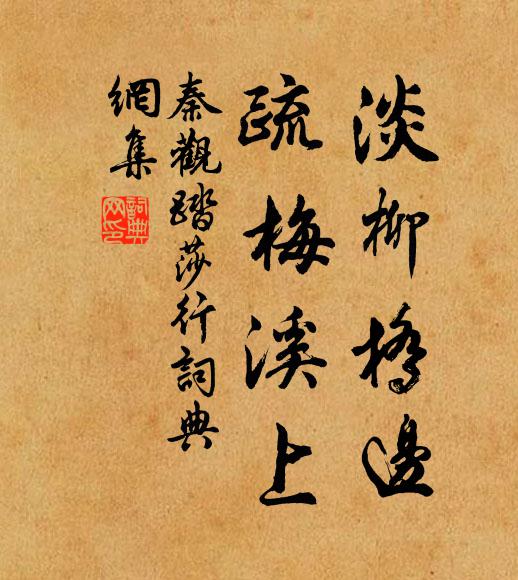 淡柳橋邊
疏梅溪上
秦觀踏莎行詞典
網集
詞典
网印